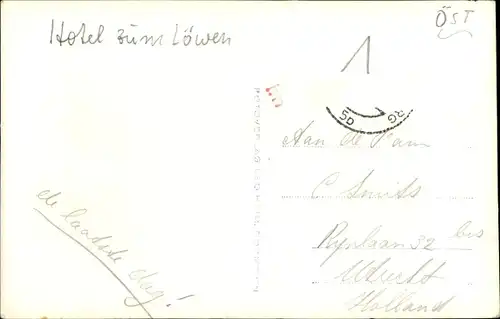 Hotel zum Löwen
1
ÖST
5D RG
Aan de Fam
C Smits
Rijnlaan 32 bis
Utrecht
Holland
de laatste dag!